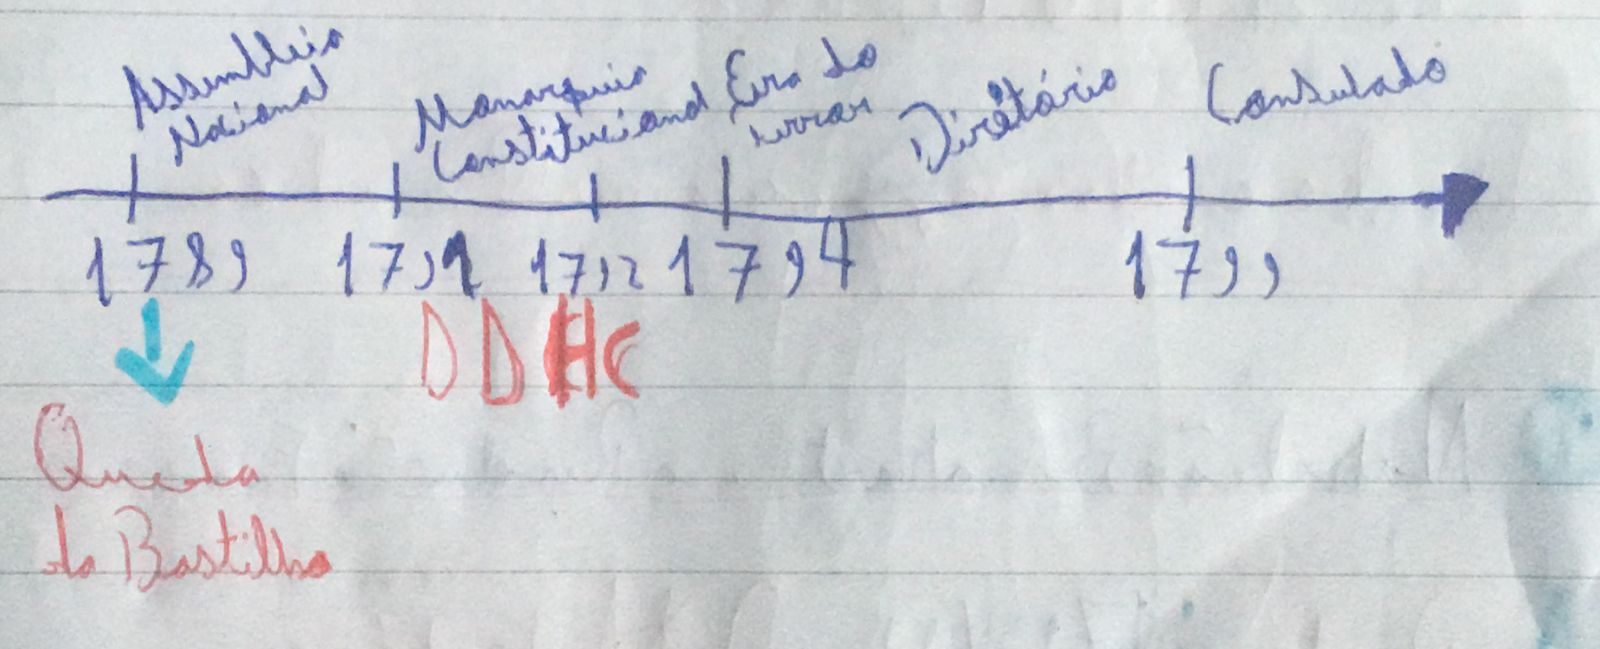 Assembleia
Nacional
Monarquia
Constitucional
Era do
terror
Diretório
Consulado
1789 1791 1792 1794 1799
DDHC
Queda
da Bastilha